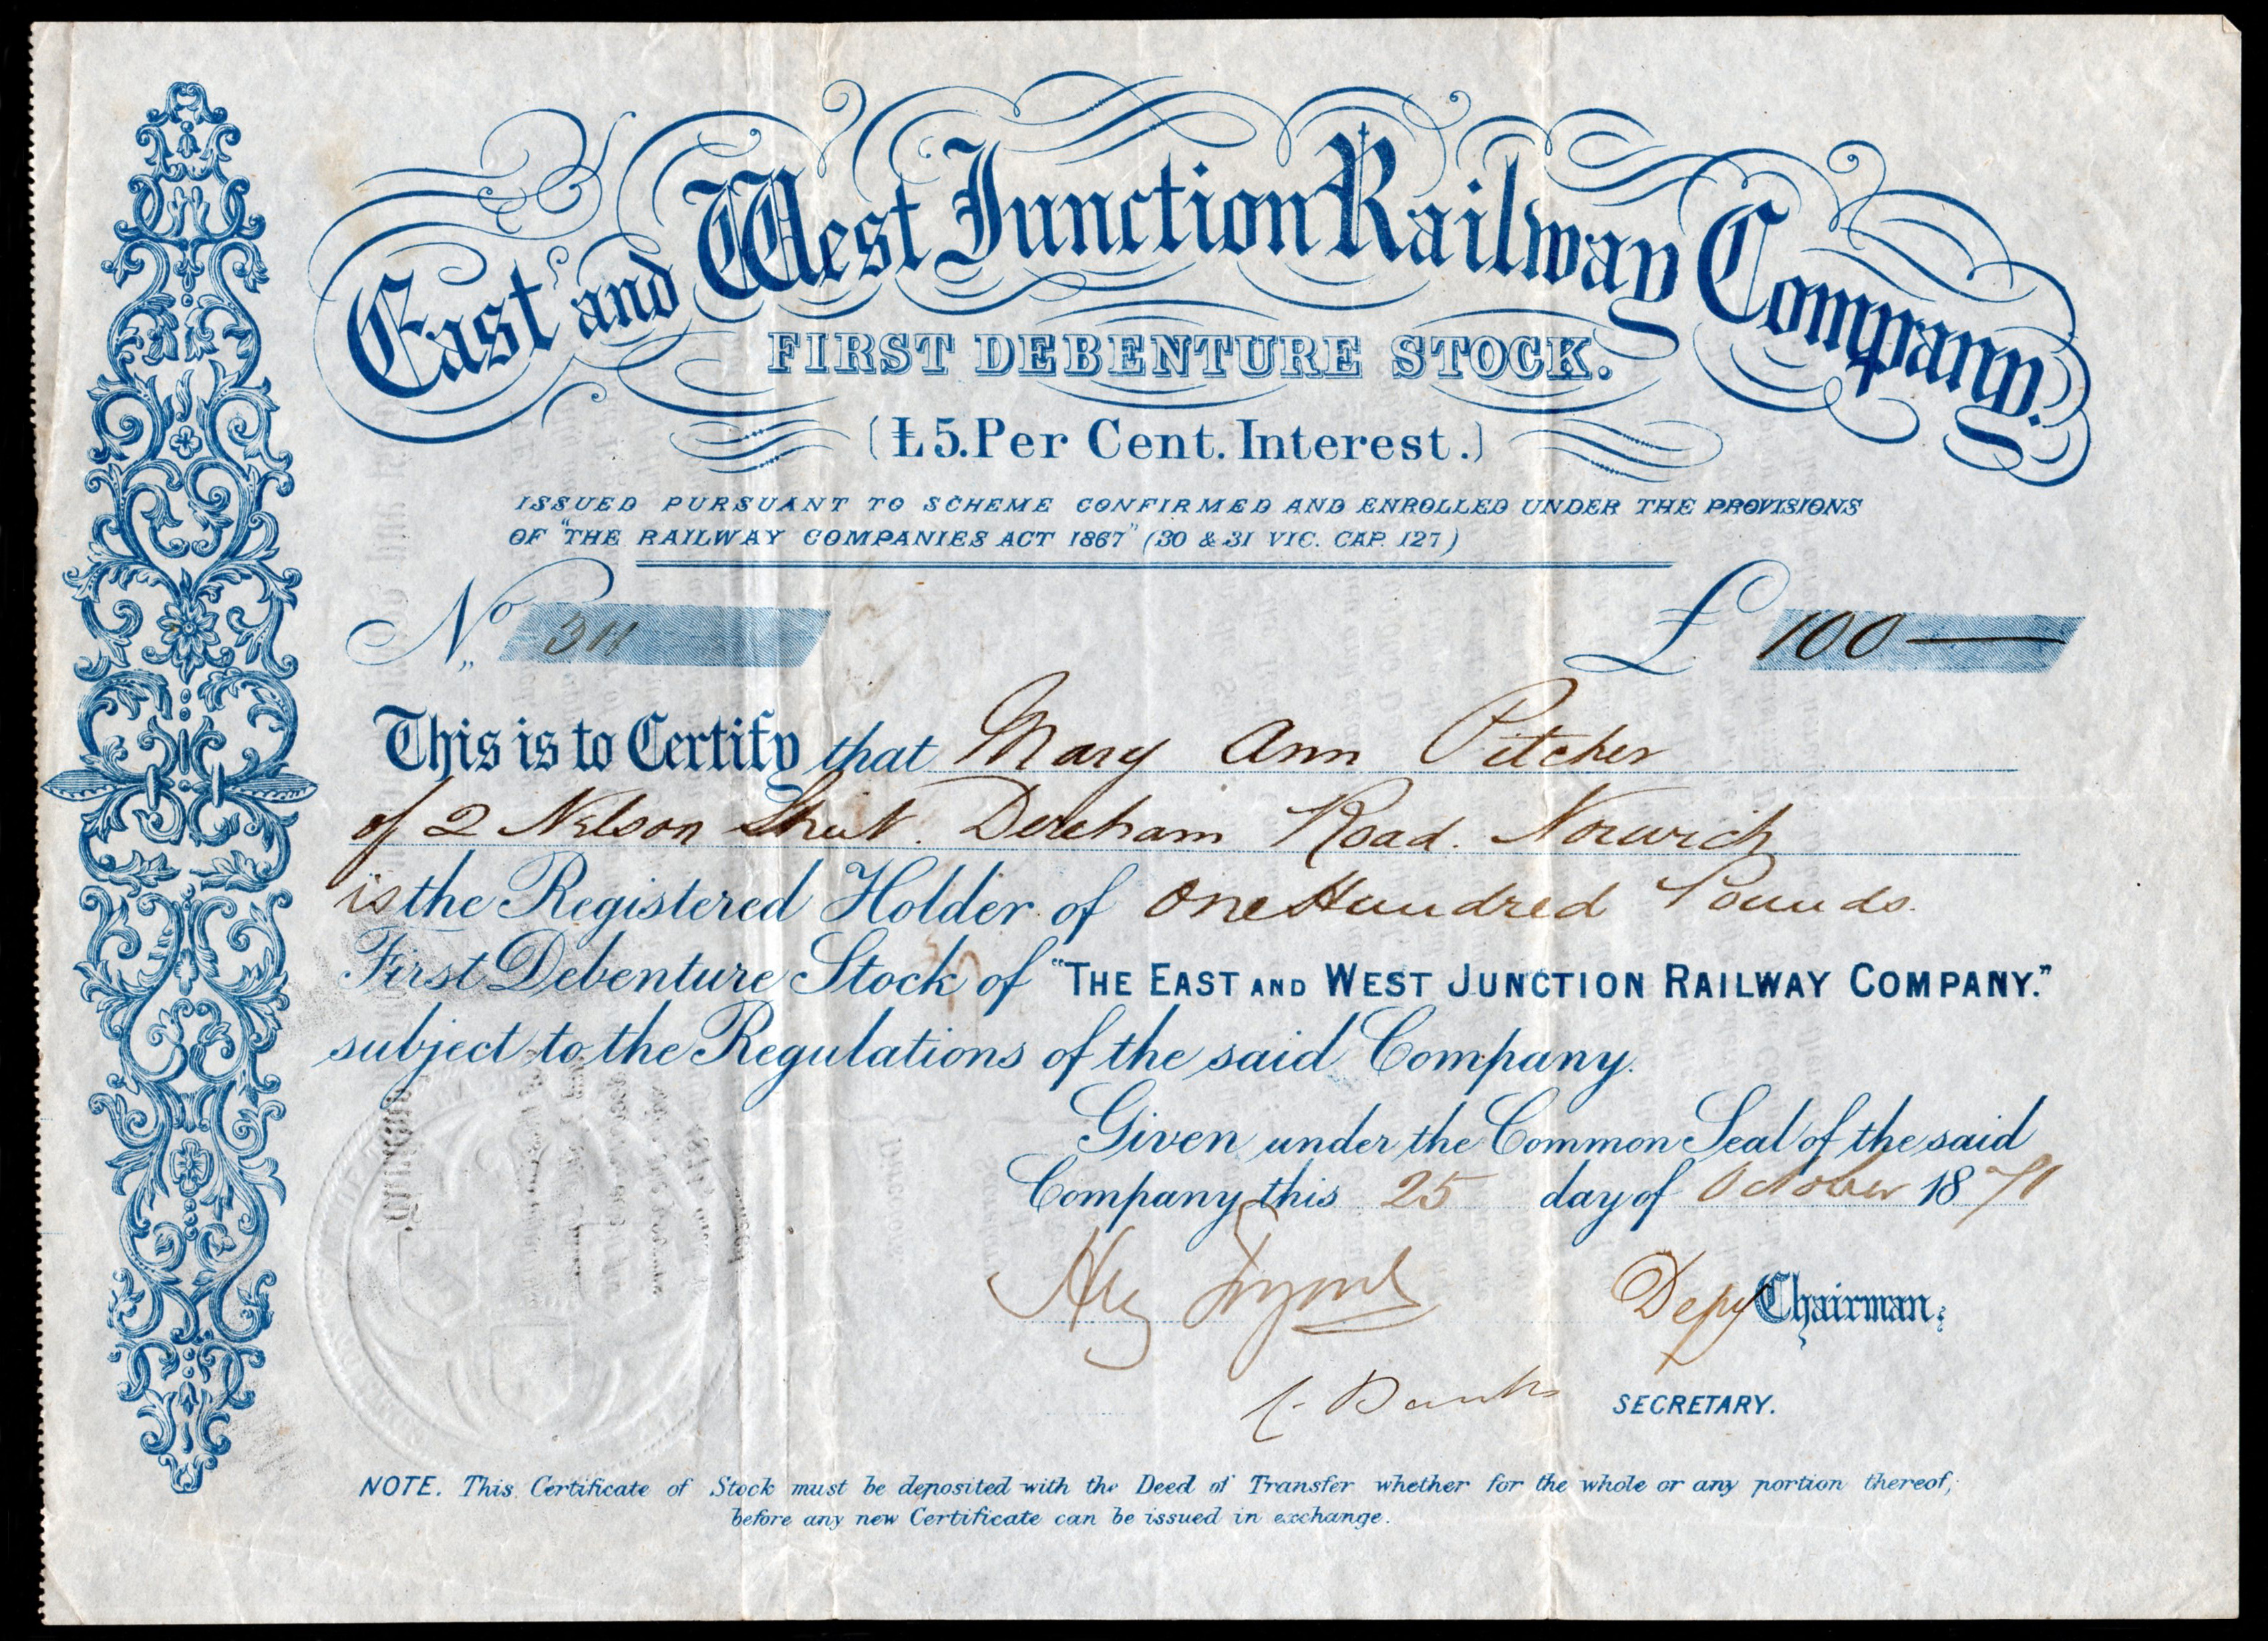 East and West Junction Railway Company.
FIRST DEBENTURE STOCK.
(£5. Per Cent. Interest.)
ISSUED PURSUANT TO SCHEME CONFIRMED AND ENROLLED UNDER THE PROVISIONS
OF "THE RAILWAY COMPANIES ACT 1867" (30 & 31 VIC. CAP. 127)
No. 311 £ 100
This is to Certify that Mary Ann Pitcher
of 2 Nelson Street. Dereham Road. Norwich
is the Registered Holder of One Hundred Pounds.
First Debenture Stock of "THE EAST AND WEST JUNCTION RAILWAY COMPANY."
subject to the Regulations of the said Company.
Given under the Common Seal of the said
Company this 25 day of October 1871
Depy Chairman.
C. Banks SECRETARY.
NOTE. This Certificate of Stock must be deposited with the Deed of Transfer whether for the whole or any portion thereof,
before any new Certificate can be issued in exchange.